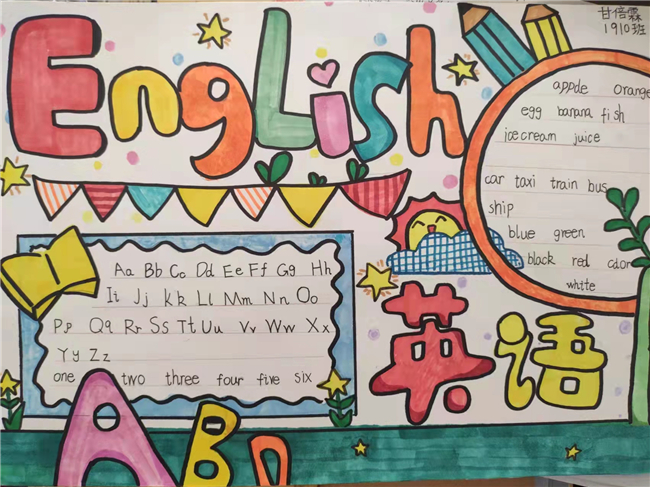 甘倍霖
1910班
English
appde orange
egg banana fish
icecream juice
car taxi train bus
ship
blue green
black red cdor
white
Aa Bb Cc Dd Ee Ff Gg Hh
It Jj kk Ll Mm Nn Oo
Pp Qq Rr Ss Tt Uu Vv Ww Xx
Yy Zz
one two three four five six
英语
ABD